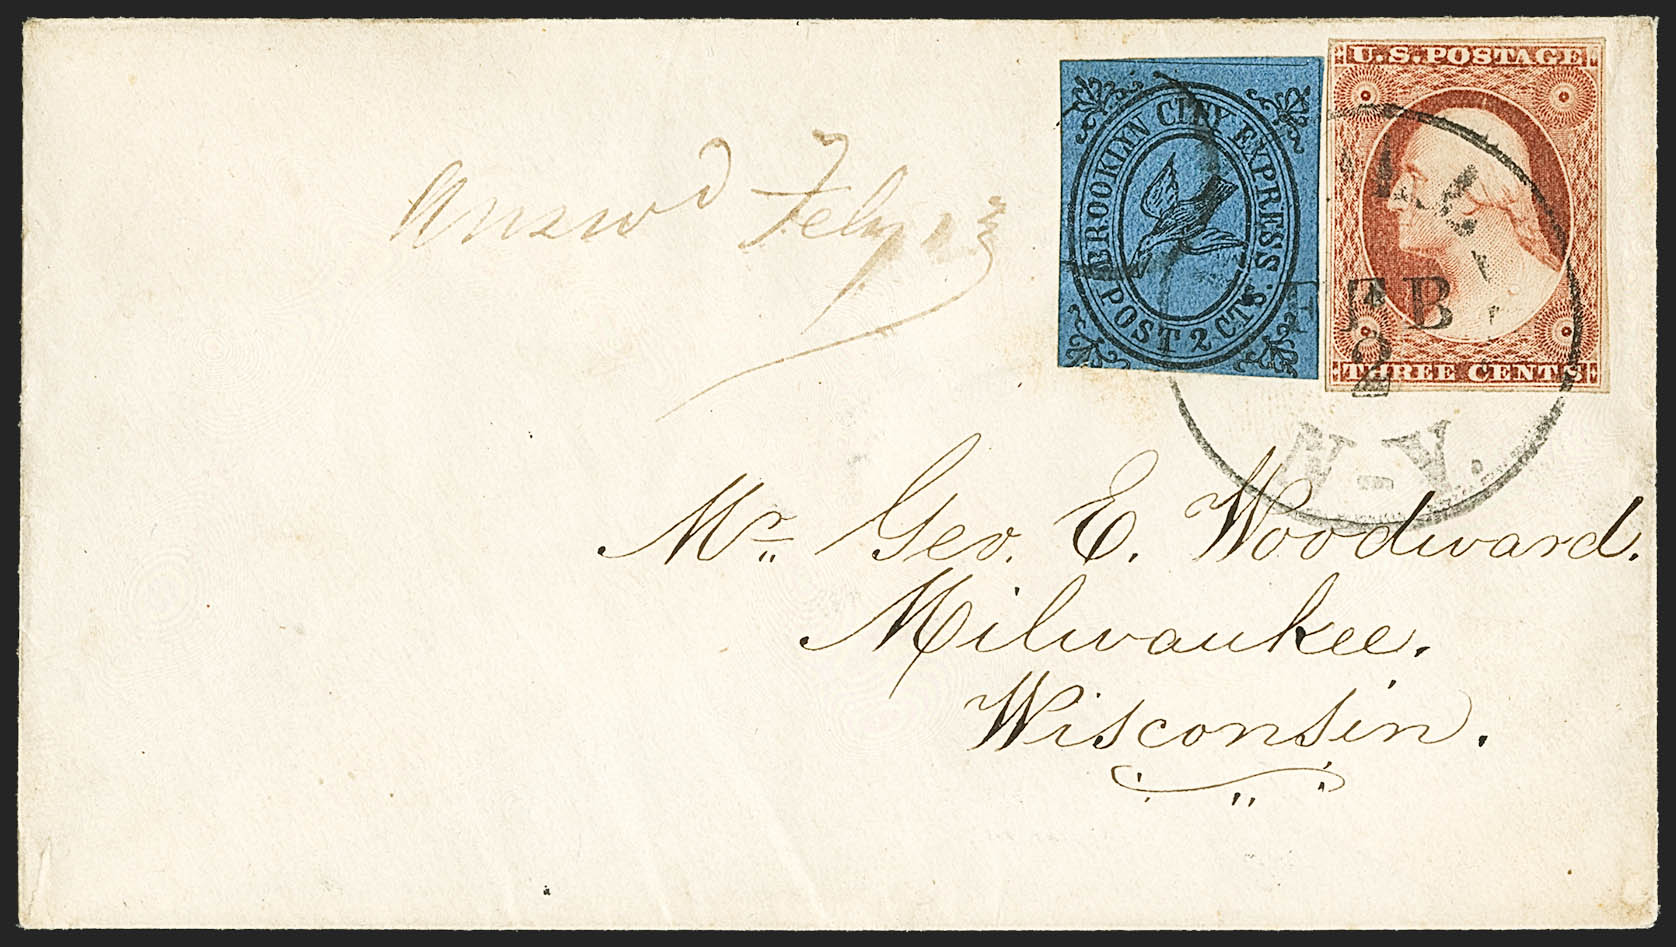 BROOKLYN CITY EXPRESS.
POST 2 CTS.
U.S. POSTAGE
THREE CENTS
FEB
2
N-Y.
Answd Feby
Mr. Geo. E. Woodward.
Milwaukee.
Wisconsin.